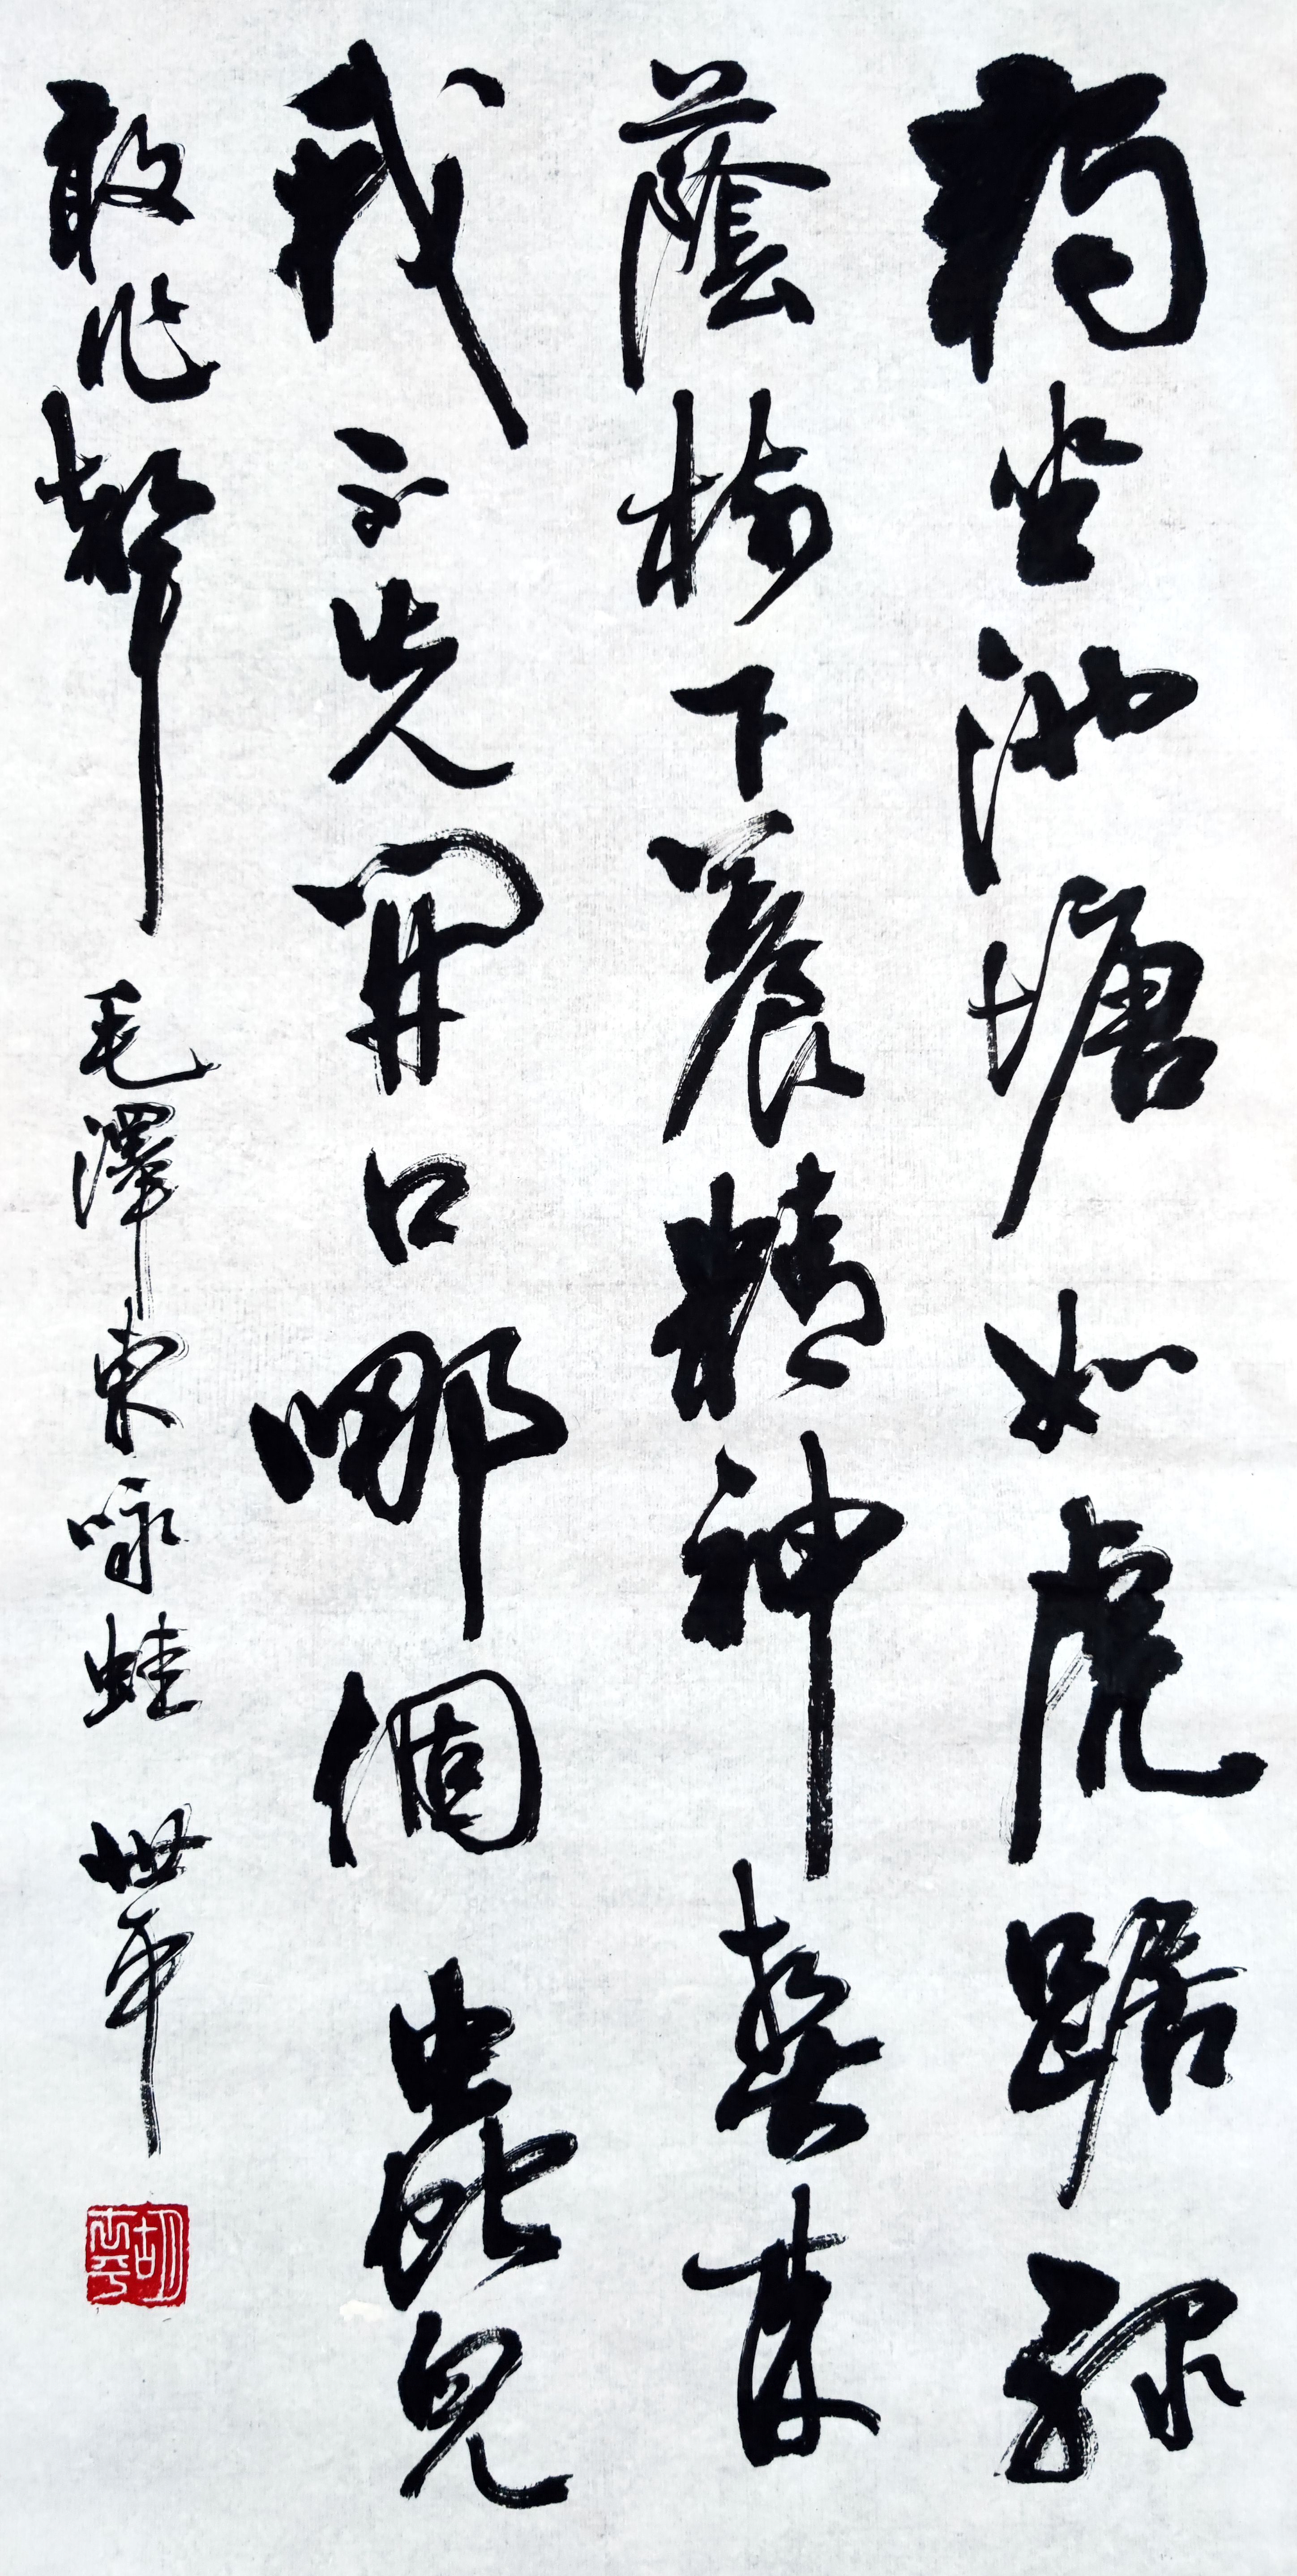 獨坐池塘如虎踞綠
蔭樹下養精神春來
我不先開口哪個蟲兒
敢作聲 毛澤東咏蛙 世平
胡世平